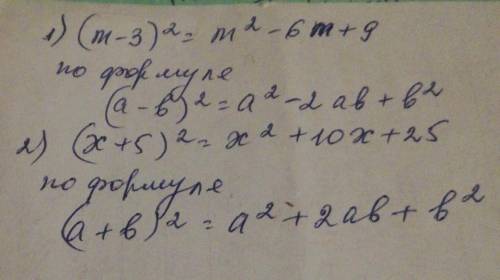 1) (m-3)² = m² - 6m + 9
по формуле
(a-b)² = a² - 2ab + b²
2) (x+5)² = x² + 10x + 25
по формуле
(a+b)² = a² + 2ab + b²